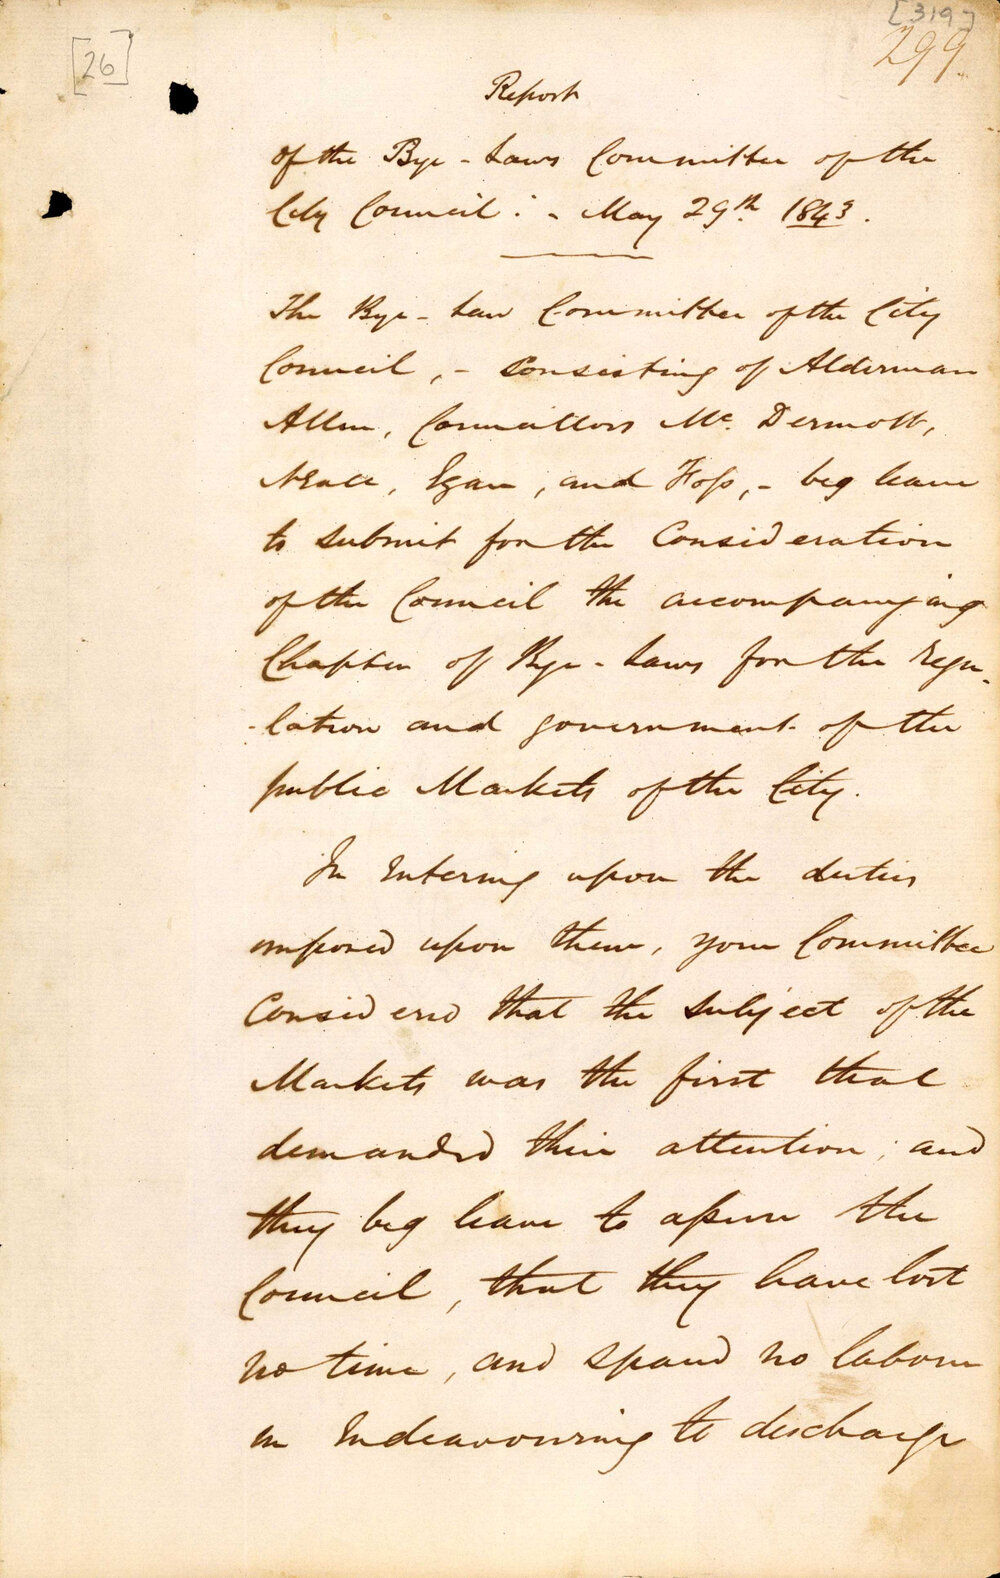 [319]
299.
[26]
Report
Of the Bye-Laws Committee of the
City Council:- May 29th. 1843.
The Bye-Law Committee of the City
Council,- Consisting of Alderman
Allen, Councillors Mc. Dermott,
Neale, Egan, and Foss,- beg leave
to submit for the Consideration
of the Council the accompanying
Chapter of Bye-Laws for the regu-
-lation and government of the
public Markets of the City.
In Entering upon the duties
imposed upon them, your Committee
Considered that the subject of the
Markets was the first that
demanded their attention; and
they beg leave to assure the
Council, that they have lost
no time, and spared no labour
in Endeavouring to discharge